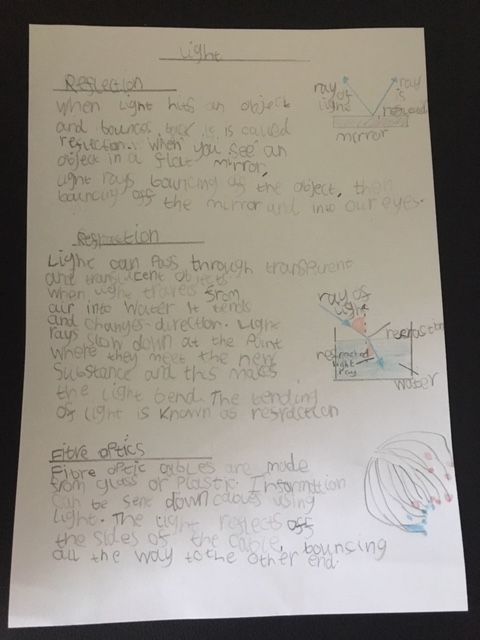 Light
Reflection
when light hits an object
and bounces back it is called
reflection. When you see an
object in a flat mirror,
light rays bouncing off the object, then
bouncing off the mirror and into our eyes.
ray of
light
ray
is
reflected
mirror
Refraction
Light can pass through transparent
and translucent objects
when light travels from
air into water it bends
and changes direction. Light
rays slow down at the point
where they meet the new
substance and this makes
the light bend. The bending
of light is known as refraction
ray of
light
refraction
refracted
light
ray
water
Fibre optics
Fibre optic cables are made
from glass or plastic. Information
can be sent down cables using
light. The light reflects off
the sides of the cable, bouncing
all the way to the other end.